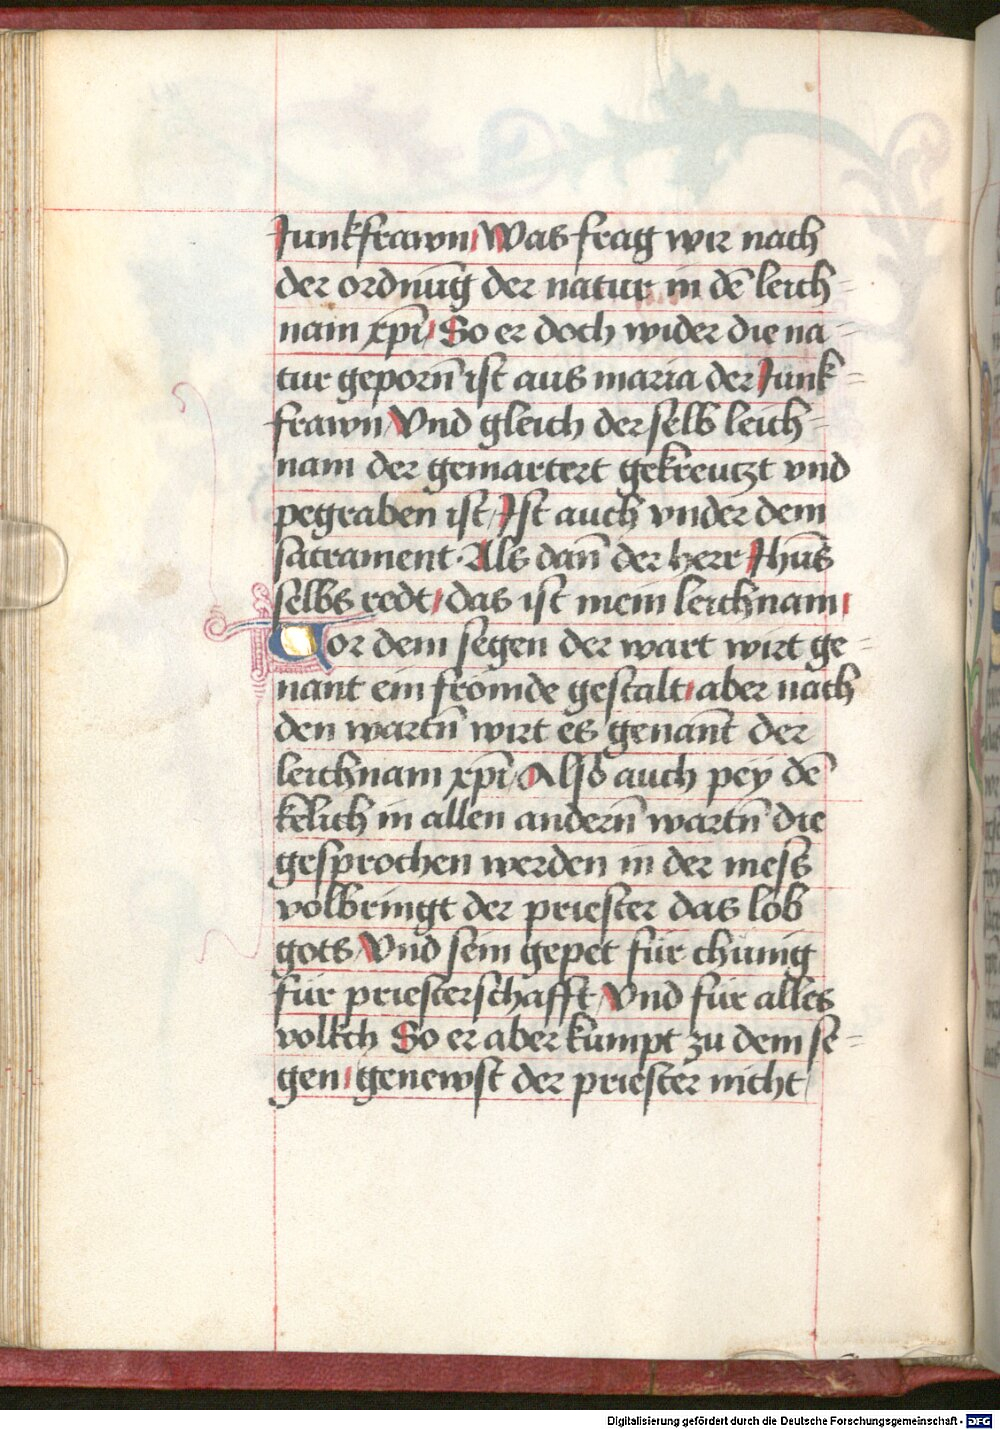 Junkfrawn / Was frag wir nach
der ordnu̅g der natur in de̅ leich=
nam xp̅i / So er doch wider die na=
tur geporn̅ ist aus maria der Junk=
frawn / Vnd gleich der selb leich=
nam der gemartert gekreutzt vnd
pegraben ist / Ist auch vnder dem
sacrament · Als dan̅ der herr Jhu̅s
selbs redt / das ist mein leichnam /
Vor dem segen der wart wirt ge=
nant ein frömde gestalt / aber nach
den wartn̅ wirt es genan̅t der
leichnam xp̅i / Also auch pey de̅
kelich in allen andern̅ wartn̅ die
gesprochen werden in der mess
volbringt der priester das lob
gots / Vnd sein gepet für chünig
für priesterschafft / Vnd für alles
volkch So er aber kumpt zu dem se=
gen / genewst der priester nicht /
Digitalisierung gefördert durch die Deutsche Forschungsgemeinschaft - DFG